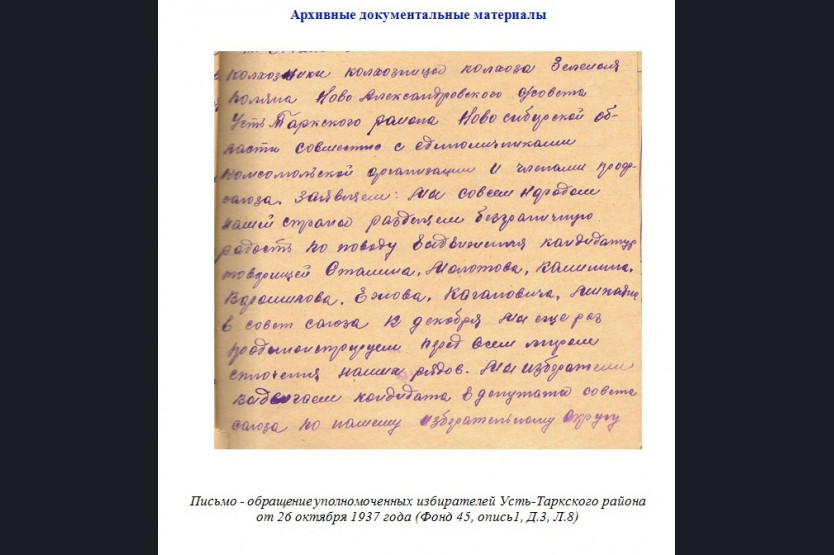 Архивные документальные материалы
колхозники колхозницы колхоза Зеленая
Поляна Ново Александровского с/совета
Усть Таркского района Ново сибирской об-
ласти совместно с единоличниками
комсомольской организации и членами проф-
союза. Заявляем: Мы со всем народом
нашей страны разделяем безграничную
радость по поводу выдвижения кандидатур
товарищей Сталина, Молотова, Калинина,
Ворошилова, Ежова, Кагановича,
в совет союза 12 декабря мы еще раз
продемонстрируем перед всем миром
сплочения наших рядов. Мы избиратели
выдвигаем кандидата в депутаты совета
союза по нашему избирательному округу
Письмо - обращение уполномоченных избирателей Усть-Таркского района
от 26 октября 1937 года (Фонд 45, опись1, Д.3, Л.8)